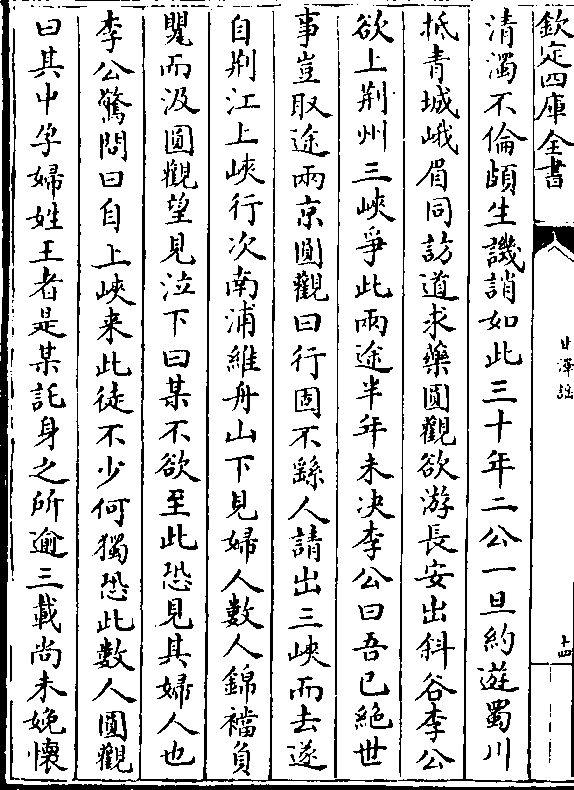 欽定四庫全書
甘澤謡
十四
清濁不倫頗生譏誚如此三十年二公一旦約遊蜀川
抵青城峨眉同訪道求藥圓觀欲游長安出斜谷李公
欲上荆州三峽爭此兩途半年未决李公曰吾已絶世
事豈取途兩京圓觀曰行固不繇人請出三峽而去遂
自荆江上峽行次南浦維舟山下見婦人數人錦襠負
甖而汲圓觀望見泣下曰某不欲至此恐見其婦人也
李公驚問曰自上峽来此徒不少何獨恐此數人圓觀
曰其中孕婦姓王者是某託身之所逾三載尚未娩懷